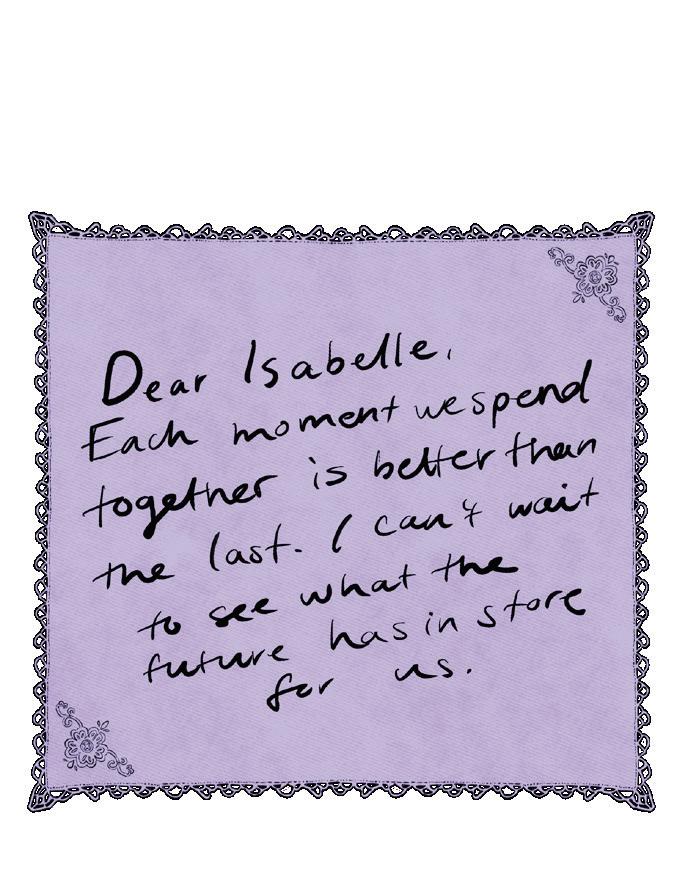 Dear Isabelle,
Each moment we spend
together is better than
the last. I can't wait
to see what the
future has in store
for us.